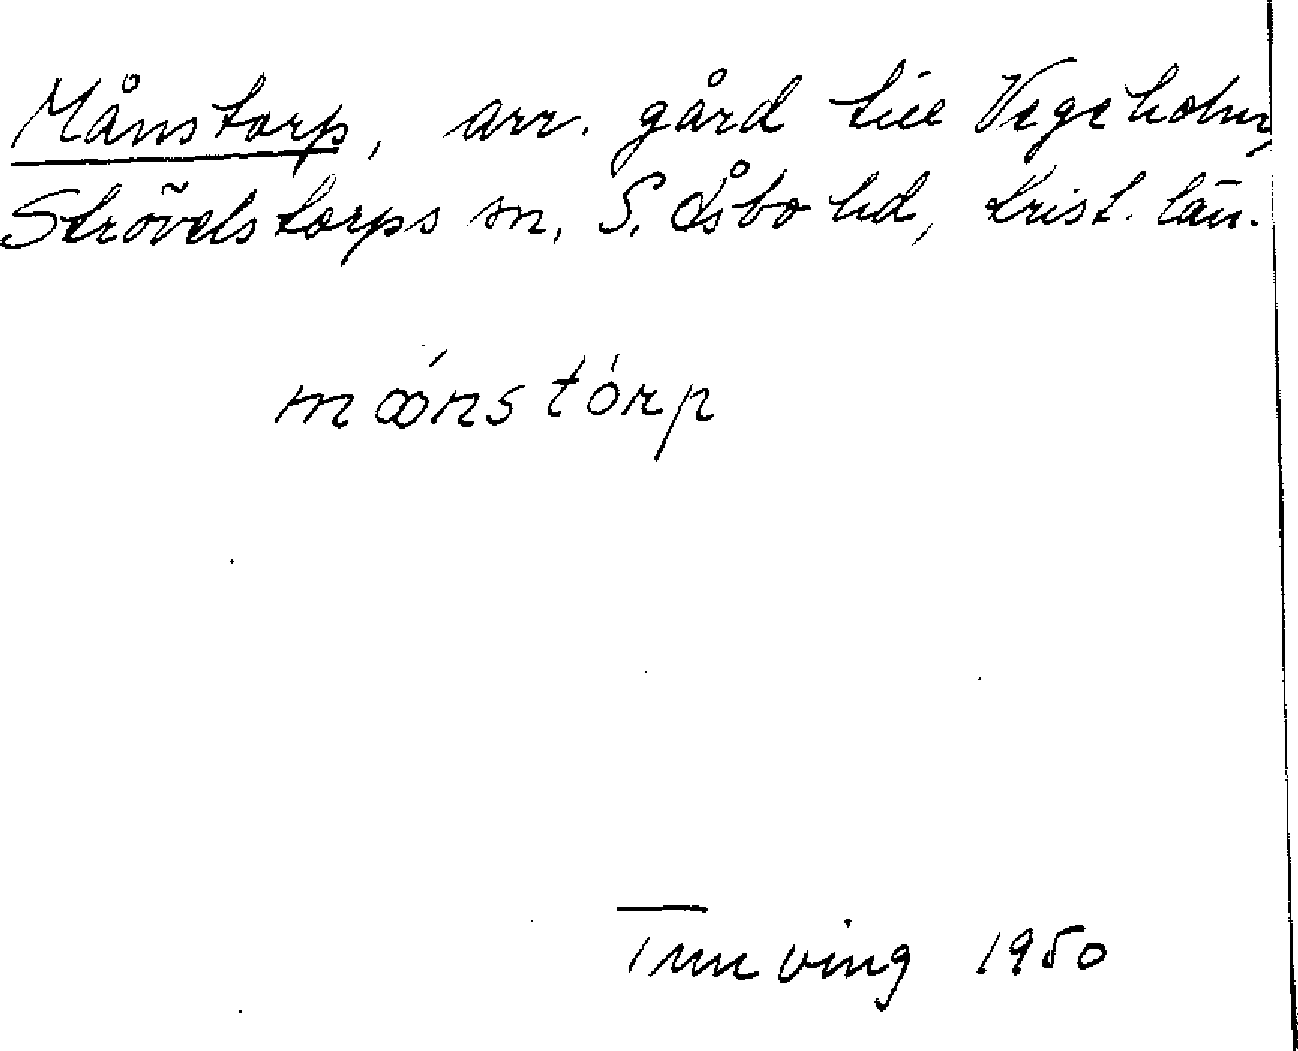 Månstorp, arr. gård till Vegeholm,
Strövelstorps sn, S. Åsbo hd, Krist. län.
mɷ́nstòrp
Tuneving 1950